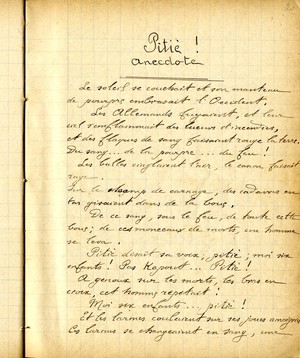 Pitié !
anecdote
Le soleil se couchait et son manteau
de pourpre embrasait l'Occident.
Les Allemands fuyaient, et leur
ciel s'enflammait des lueurs d'incendies,
et des flaques de sang faisaient rouge la terre.
Du sang... de la pourpre... du feu !
Les balles cinglaient l'air, le canon faisait
rage...
Sur le champ de carnage, des cadavres en
tas gisaient dans de la boue.
De ce sang, sous le feu, de toute cette
boue, de ces monceaux de morts, un homme
se leva.
Pitié disait sa voix, pitié, moi six
enfants ! Pas Kapout... Pitié !
A genoux sur les morts, les bras en
croix, cet homme répétait :
Moi six enfants... pitié !
Et les larmes coulaient sur ses joues
les larmes se changeaient en sang, une